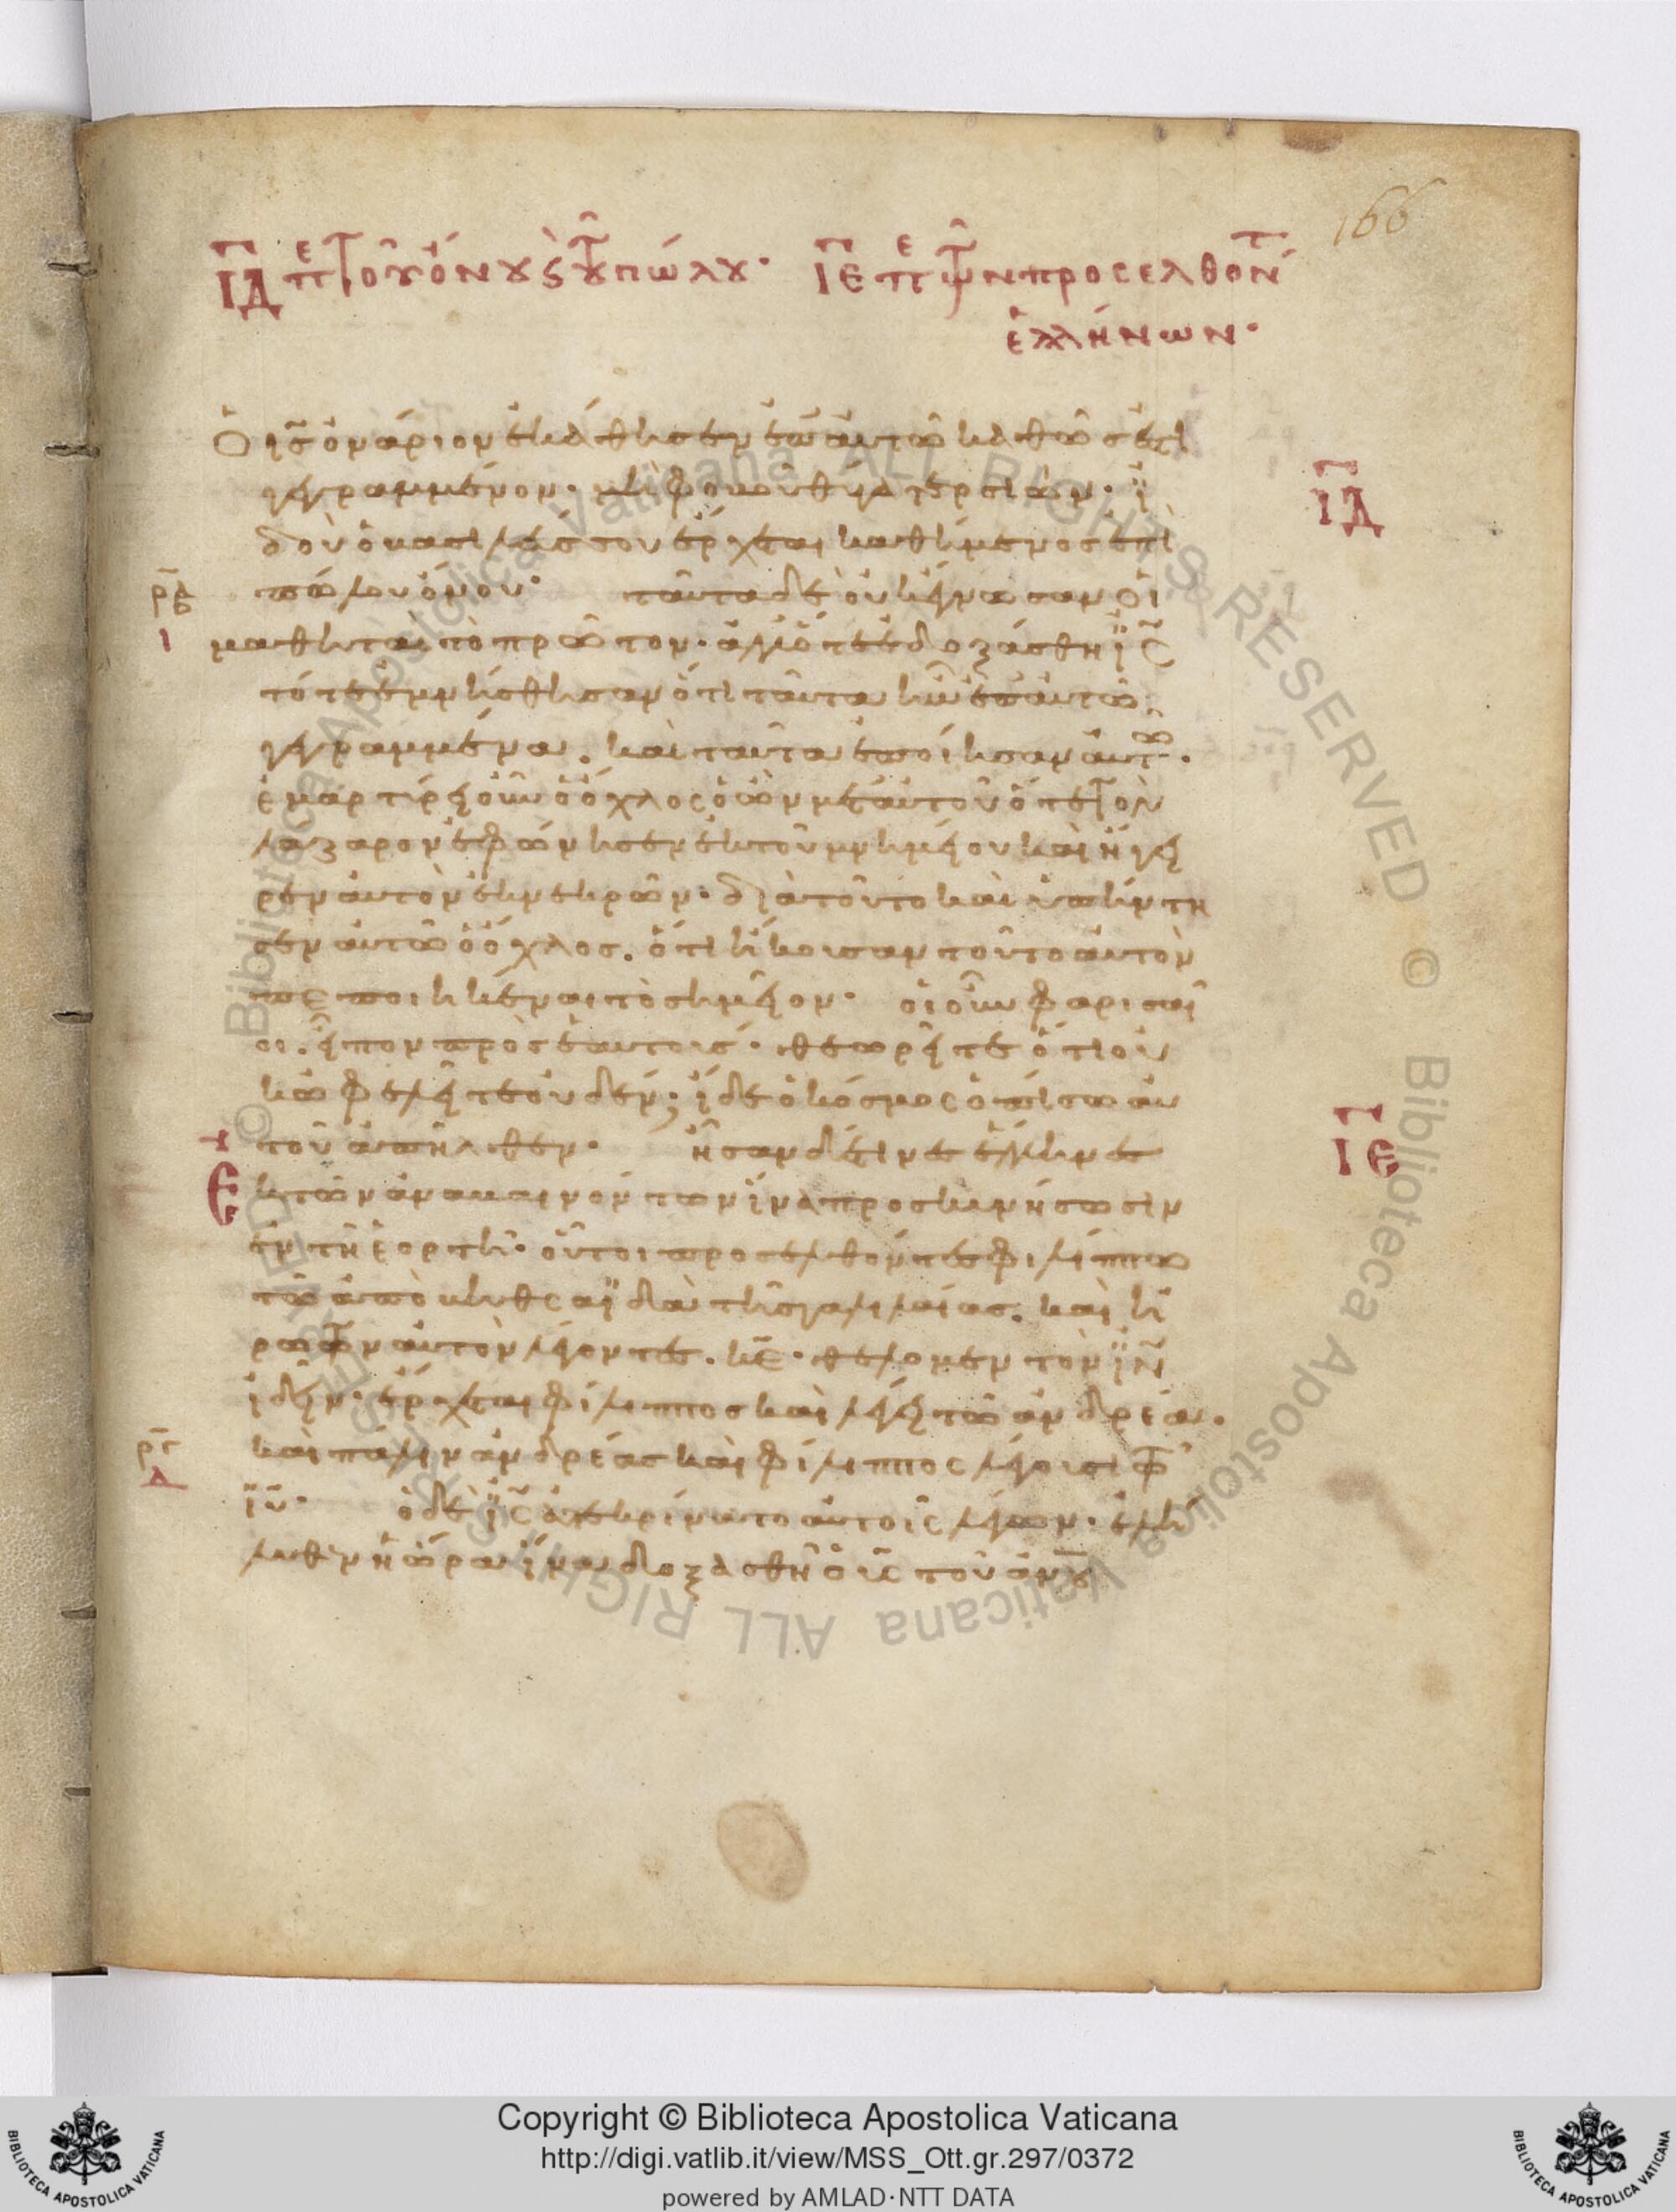 166
ΙΔ πε τοῦ ὄνου ϛ τοῦ πώλου· ΙΕ πε τῶν προσελθόντ
ἑλλήνων·
Ὁ ις ὀνάριον ἐκάθησεν ἐπ αὐτῶ καθώς ἐστι
γεγραμμένον· μὴ φοβοῦ θύγατερ σιών· ἰ
ΙΔ
δοὺ ὁ βασιλεύς σου ἔρχεται καθήμενος ἐπὶ
πώλου ὄνου· ταῦτα δὲ οὐκ ἔγνωσαν οἱ
μαθηταὶ τὸ πρῶτον· ἀλλ ὅτε ἐδοξάσθη ις
τότε ἐμνήσθησαν ὅτι ταῦτα ἦν ἐπ αὐτῶ
γεγραμμένα. καὶ ταῦτα ἐποίησαν αὐτῶ.
ἐμαρτύρει οὖν ὁ ὄχλος ὁ ὢν μετ αὐτοῦ ὅτε τὸν
λάζαρον ἐφώνησεν ἐκ τοῦ μνημείου καὶ ἤγει
ρεν αὐτὸν ἐκ νεκρῶν· διὰ τοῦτο καὶ ὑπήντη
σεν αὐτῶ ὁ ὄχλος. ὅτι ἤκουσαν τοῦτο αὐτὸν
πεποιηκέναι τὸ σημεῖον· οἱ οὖν φαρισαῖ
οι εἶπον πρὸς ἑαυτούς· θεωρεῖτε ὅτι οὐ
κ ὠφελεῖτε οὐδέν; ἴδε ὁ κόσμος ὀπίσω αὐ
τοῦ ἀπῆλθεν· ἦσαν δέ τινες ἕλληνες
ΙΕ
ἐκ τῶν ἀναβαινόντων ἵνα προσκυνήσωσιν
ἐν τῆ ἑορτῆ· οὗτοι προσελθόντες φιλίππω
τῶ ἀπὸ βηθσαϊδὰ τῆς γαλιλαίας. καὶ ἠ
ρώτων αὐτὸν λέγοντες. κε· θέλομεν τὸν ιν
ἰδεῖν· ἔρχεται φίλιππος καὶ λέγει τῶ ἀνδρέα.
καὶ πάλιν ἀνδρέας καὶ φίλιππος λέγουσι τῶ
ιυ· ὁ δὲ ις ἀπεκρίνατο αὐτοῖς λέγων· ἐλή
λυθεν ἡ ὥρα ἵνα δοξασθῆ ὁ υς τοῦ ανου
Copyright © Biblioteca Apostolica Vaticana
http://digi.vatlib.it/view/MSS_Ott.gr.297/0372
powered by AMLAD·NTT DATA
BIBLIOTECA APOSTOLICA VATICANA
BIBLIOTECA APOSTOLICA VATICANA